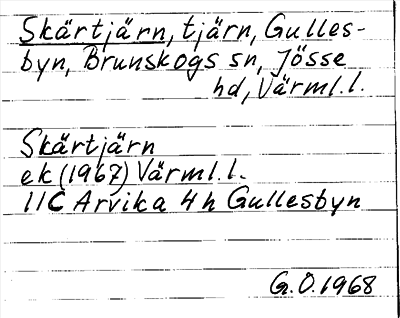 Skärtjärn, tjärn, Gulles-
byn, Brunskogs sn, Jösse
hd, Värml.l.
Skärtjärn
ek (1967) Värml.l.
11C Arvika 4h Gullesbyn
G.O.1968